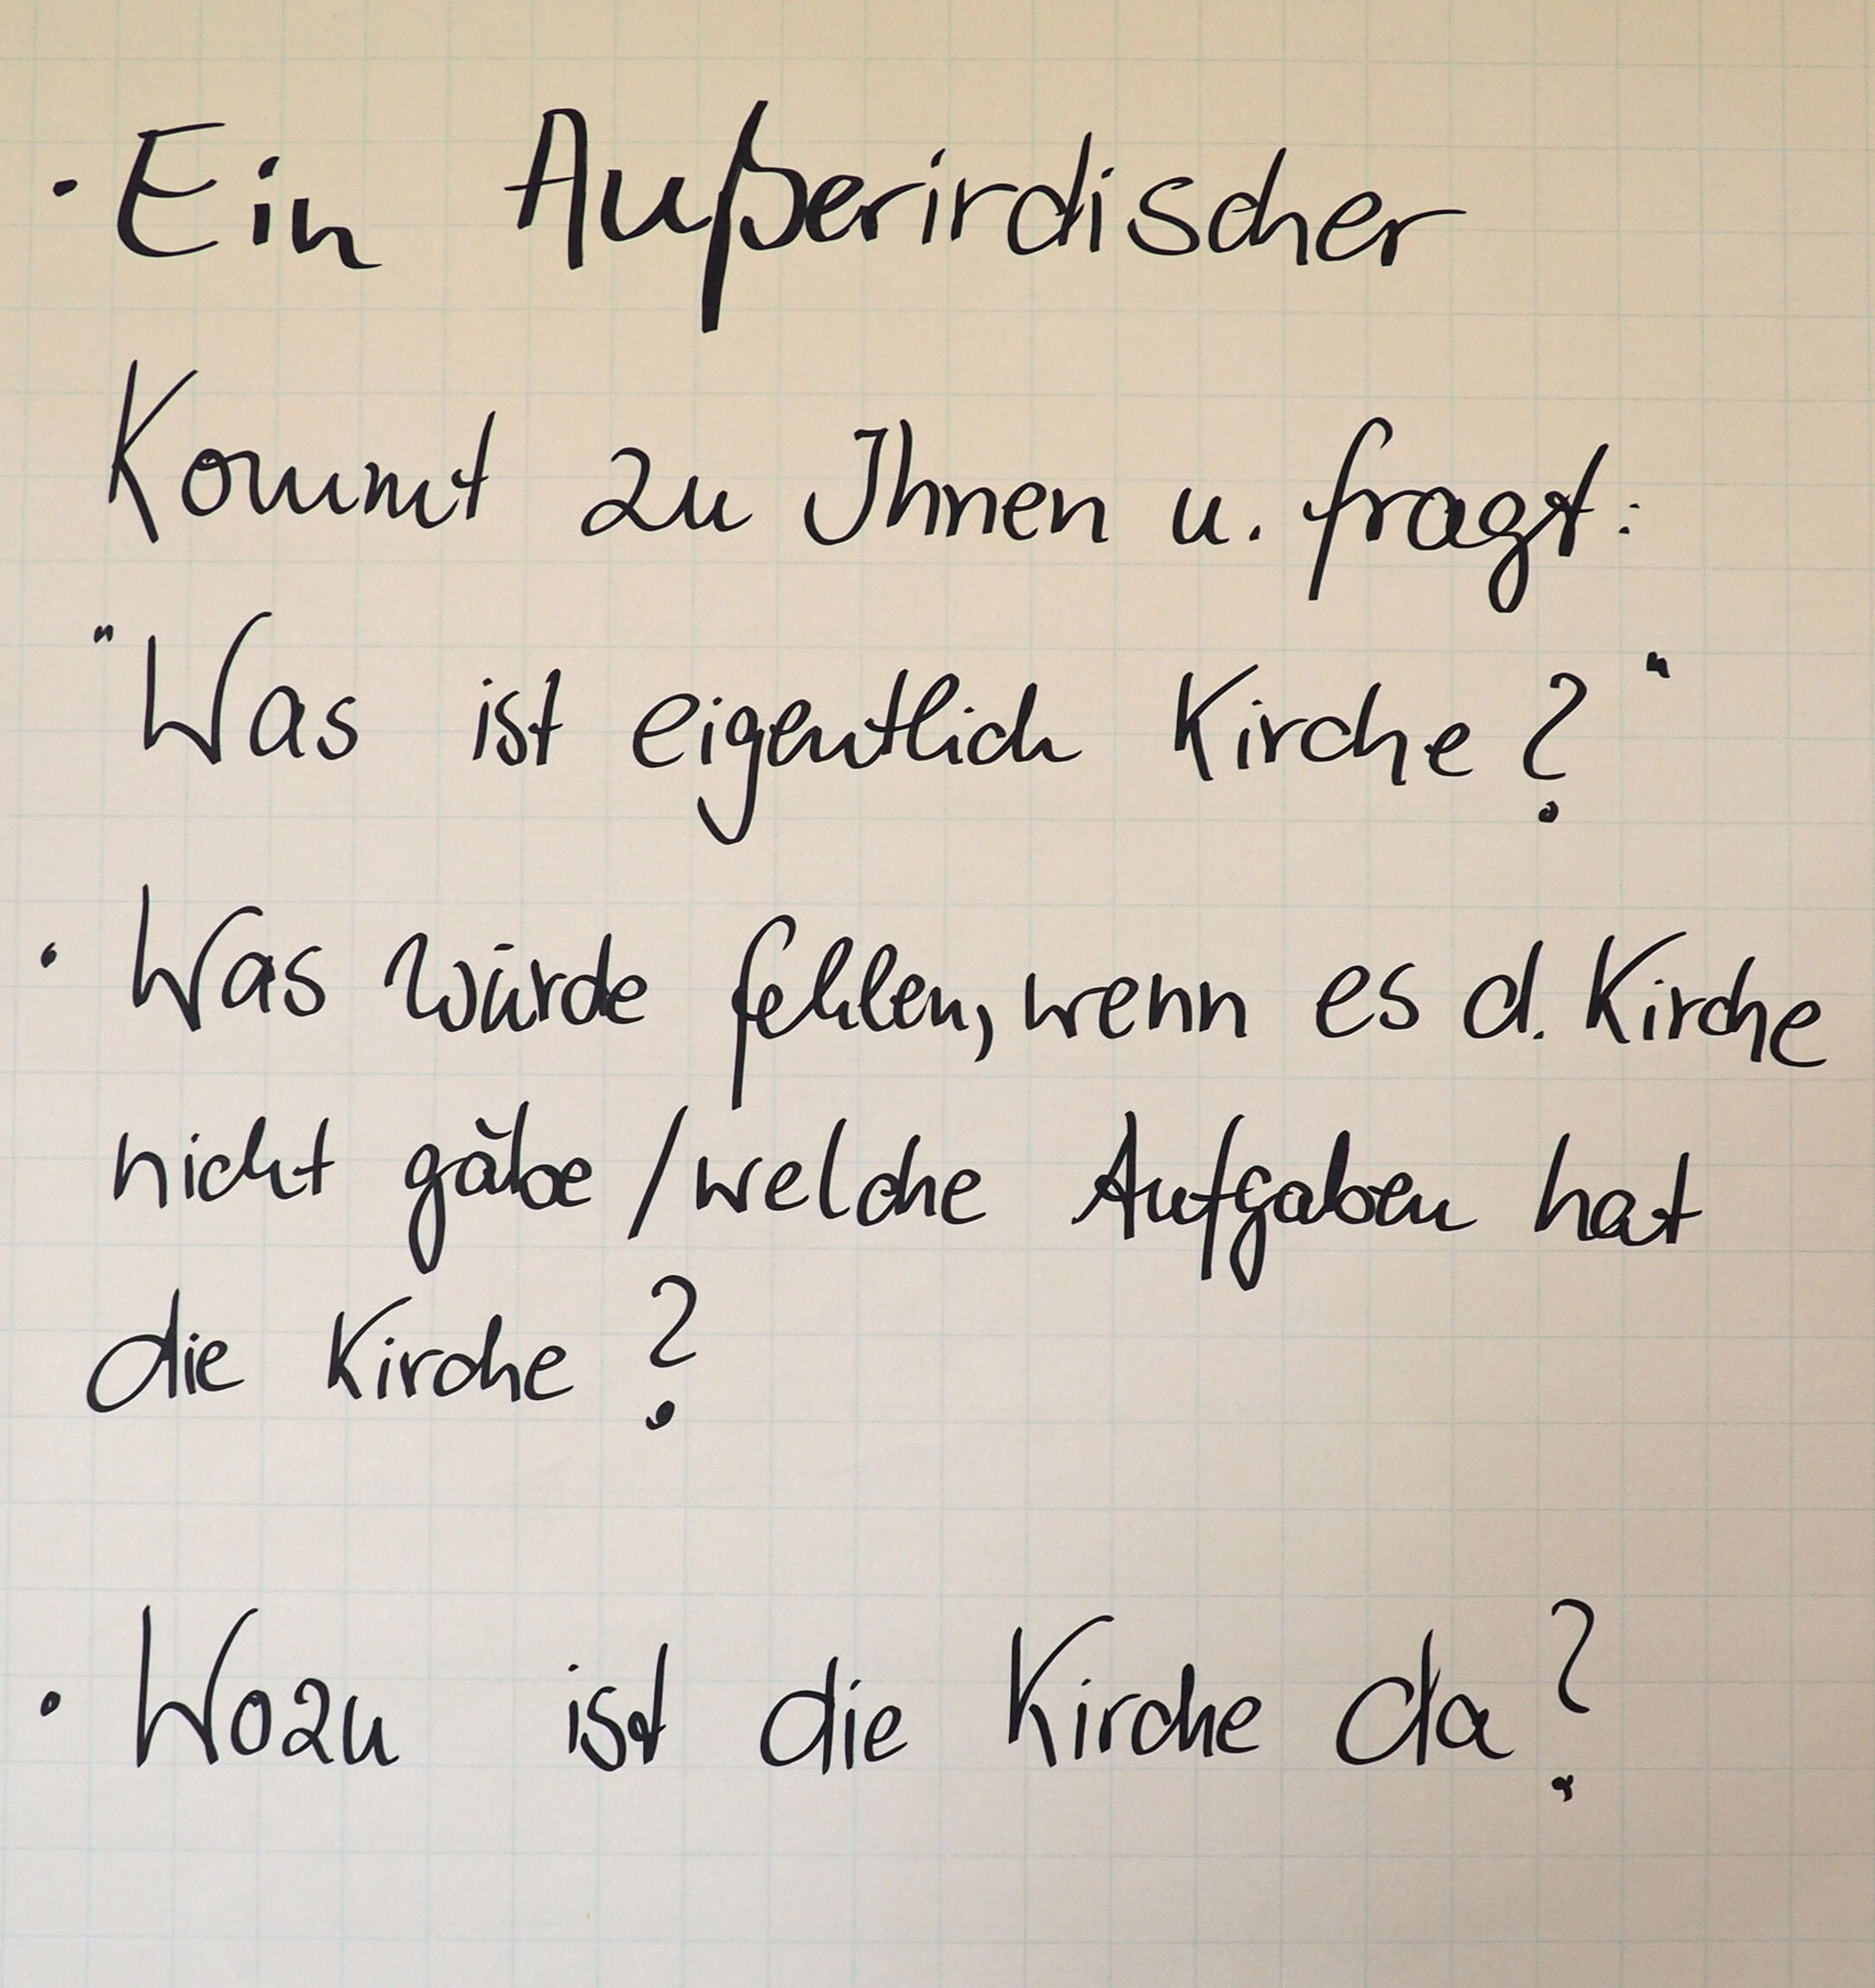 · Ein Außerirdischer
kommt zu Ihnen u. fragt:
"Was ist eigentlich Kirche?"
· Was würde fehlen, wenn es d. Kirche
nicht gäbe / welche Aufgaben hat
die Kirche?
· Wozu ist die Kirche da?